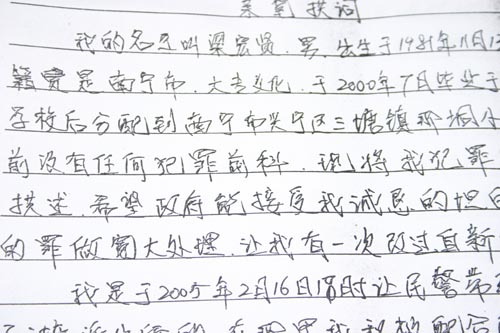 亲笔供词
我的名字叫梁宏贤.男.出生于1981年11月12
籍贯是南宁市.大专文化.于2000年7月毕业于
学校后分配到南宁市兴宁区三塘镇那
前没有任何犯罪前科.现将我犯罪
供述.希望政府能接受我诚恳的坦白
的罪做宽大处理.让我有一次改过自新
我是于2005年2月16日18时让民警带